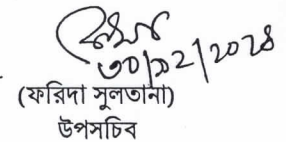 ৩০/১২/২০২৪
(ফরিদা সুলতানা)
উপসচিব